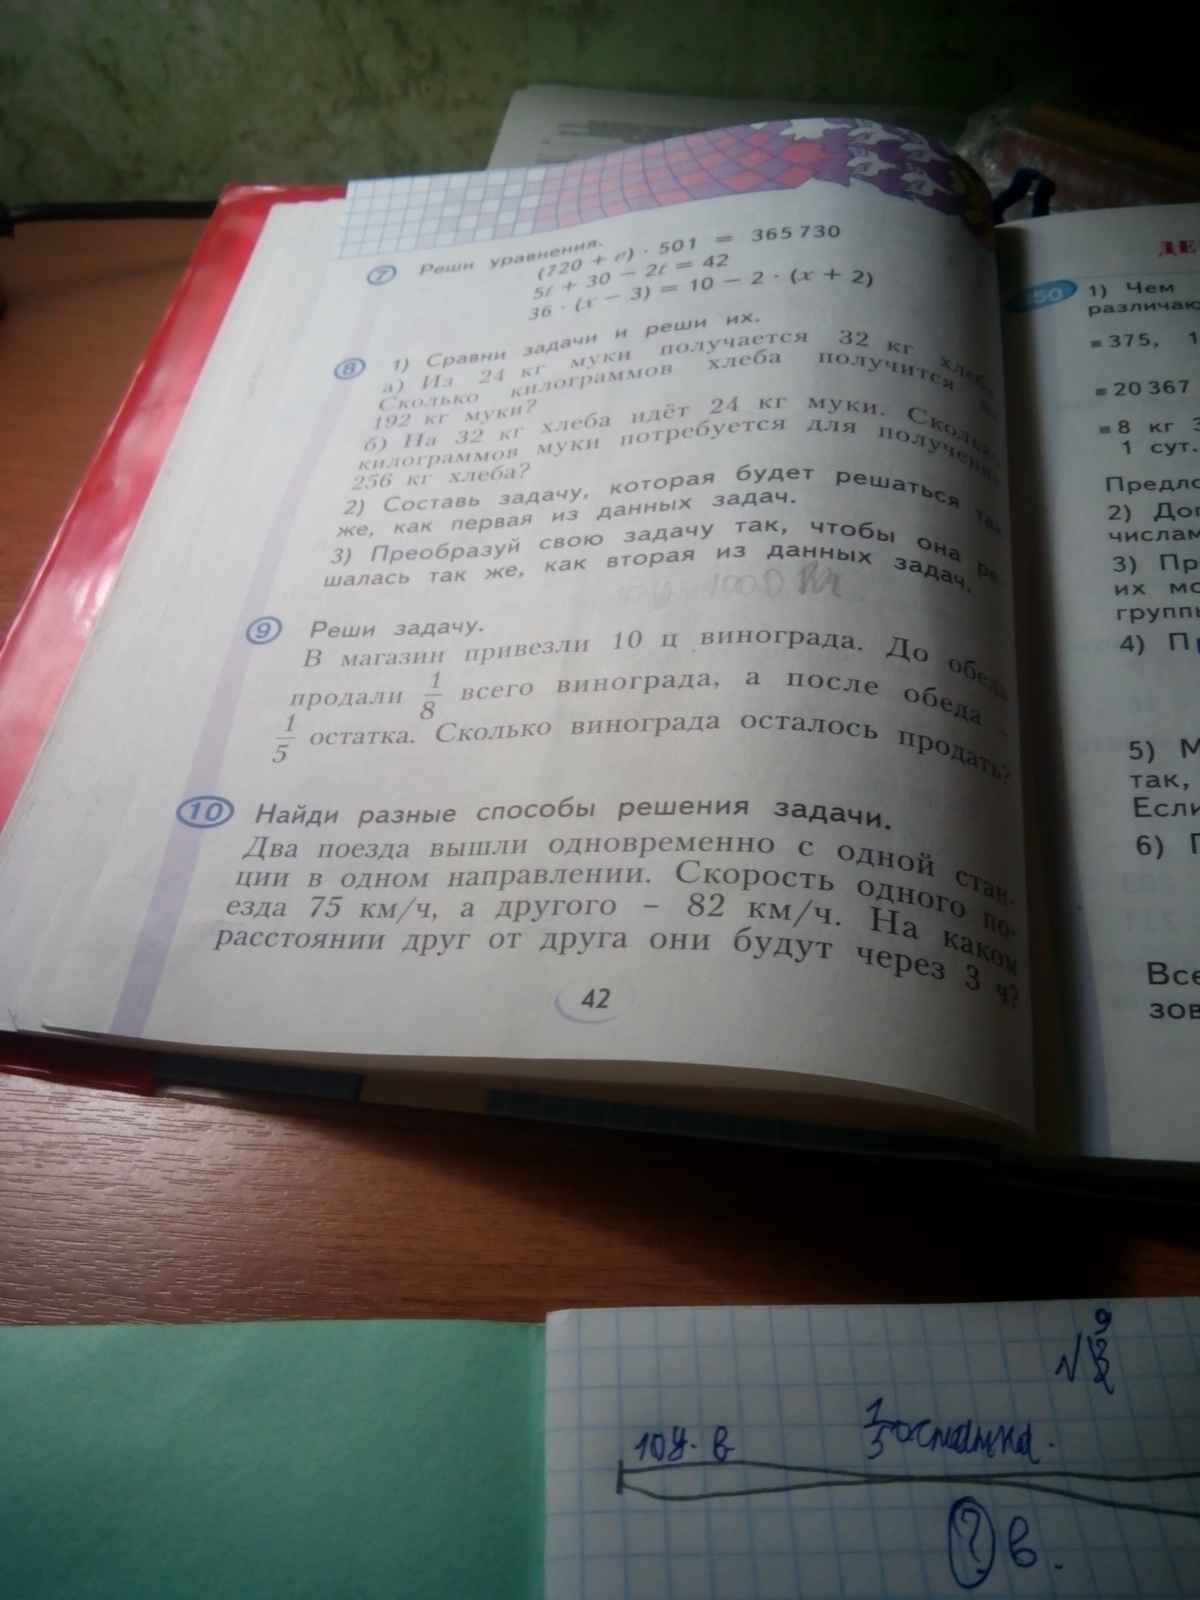 7 Реши уравнения.
(720 + e) · 501 = 365 730
5t + 30 − 2t = 42
36 · (x − 3) = 10 − 2 · (x + 2)
8 1) Сравни задачи и реши их.
а) Из 24 кг муки получается 32 кг хлеба
Сколько килограммов хлеба получится из
192 кг муки?
б) На 32 кг хлеба идёт 24 кг муки. Сколько
килограммов муки потребуется для получения
256 кг хлеба?
2) Составь задачу, которая будет решаться так
же, как первая из данных задач.
3) Преобразуй свою задачу так, чтобы она ре-
шалась так же, как вторая из данных задач.
9 Реши задачу.
В магазин привезли 10 ц винограда. До обеда
продали 1/8 всего винограда, а после обеда –
1/5 остатка. Сколько винограда осталось продать?
10 Найди разные способы решения задачи.
Два поезда вышли одновременно с одной стан-
ции в одном направлении. Скорость одного по-
езда 75 км/ч, а другого – 82 км/ч. На каком
расстоянии друг от друга они будут через 3 ч?
42
ДЕ
350 1) Чем
различаю
375, 1
20 367
8 кг 3
1 сут.
Предло
2) Доп
числам
3) Пр
их мо
группы
4) П
5) М
так,
Если
6) П
Все
зов
10 ц. в
1/5 остатка.
? в.